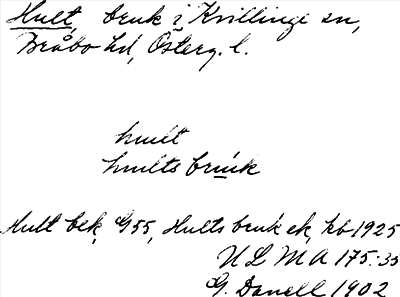 Hult, bruk i Kvillinge sn,
Bråbo hd, Österg. l.
hult
hults bruk
Hult bek, G55, Hults bruk ek, kb 1925
ULMA 175:35
G. Danell 1902